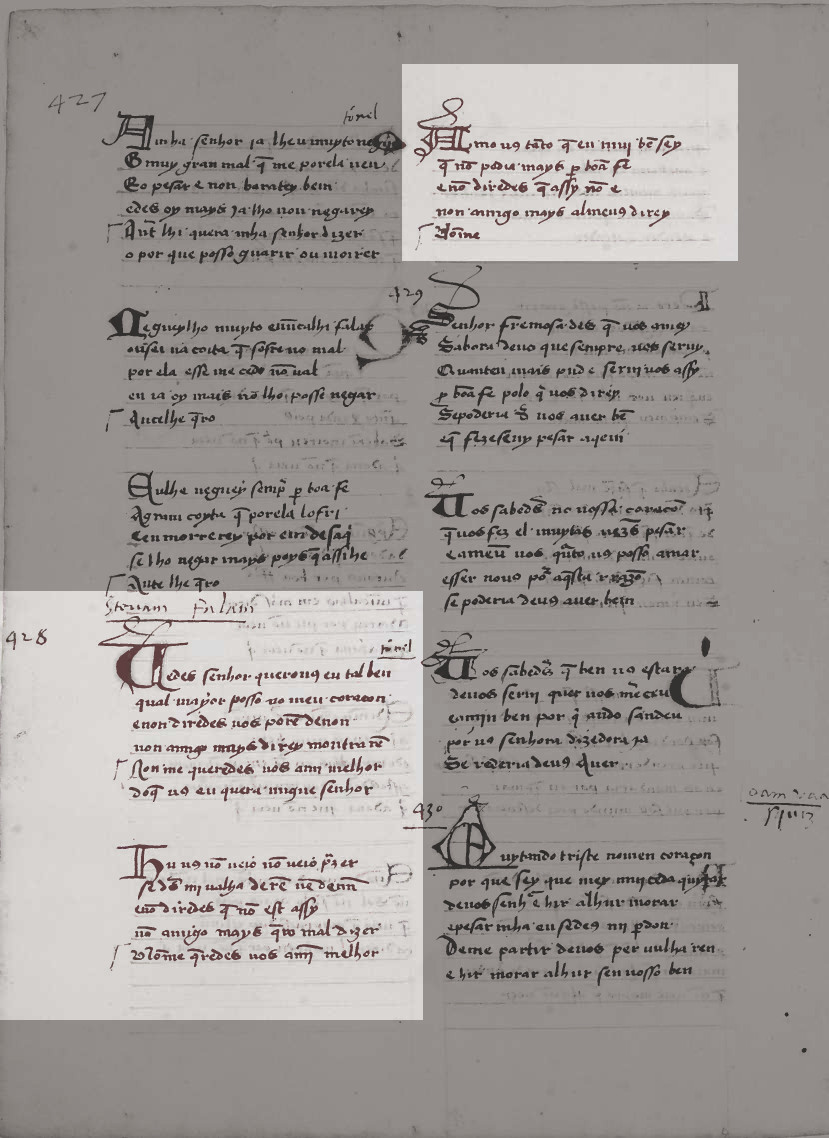 427
tornel
Minha senhor ja lheu muyto neguey
O muy gran mal q̄ me por ela uen
E o pesar e non baratey ben
e des oy mays ja lho non negarey
Ant lhi querꝛa mha senhor dizer
o por que posso guarir ou moirer
Neguey lho muyto e nūcalhi falar
ousei na coita q̄ sofre no mal
por ela e sse me cedo nō ual
eu ia oy mais nō lho posso negar
Ante lhe q̄ro
Eu lhe neguey semp̄ p̄ boa fe
A gram coyta q̄ por ela sofri
E eu morrerey por em desaq̄
se lho negar mays poys q̄ assi he
Ante lhe q̄ro
Steuam Faiam
428
tornel
Uedes senhor querouꝯ eu tal ben
qual mayor posso no meu coraçon
e non diredes uos porē de non
non amigo mays direy moutra rē
Non me queredes uos a mi melhor
do q̄ uꝯ eu quera migue senhor
Hu uꝯ nō ueio nō ueio p̄zer
se dē mi ualha de rē nē de mī
enō diredes q̄ nō est assy
nō amigo mays q̄ro mal dizer
Nō me q̄redes uos a mī melhor
Amo uꝯ tāto q̄ eu mui bē sey
q̄ nō podia mays p̄ boā fe
e nō diredes q̄ assy nō e
non amigo mays al meuꝯ direy
Nō me
429
Senhor fremosa des q̄ uos amey
Sabora deus que sempre uos seruy
Quanteu mais pud e serui uos assy
p̄ boā fe polo q̄ uos direy
Se poderia uos auer bē
eq̄ fezese uy pesar aqeui
Uos sabedes no uosso coraçō
q̄ uos fez el muytas uezꝯ pesar
e ameu uos q̄nto uꝯ posso amar
e sser nouꝯ por aq̄sta razō
se poderia deus auer ben
Uos sabedes q̄ ben uꝯ estara
de uos serui quer uos merceu
e a min ben por q̄ ando sandeu
por uꝯ senhora dizedora ja
Se poderia deus auer
430
Cuytando triste no meu coraçon
por que sey que mey mui ceda quytar
de uos senhor e hir alhur morar
e pesar mha en se deus mi p̄don
De me partir de uos per nulha ren
e hir morar alhur sen uosso ben